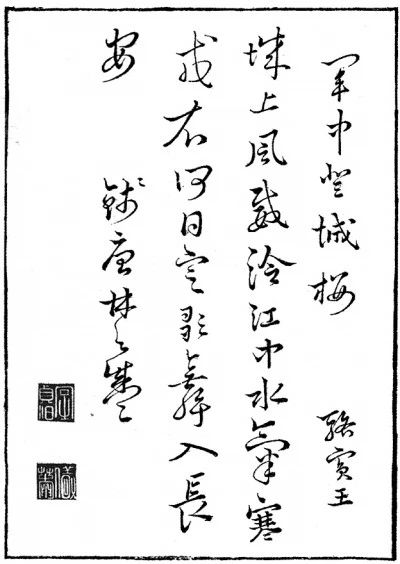 軍中登城樓 駱賓王
城上風威冷江中水氣寒
戎衣何日定歌舞入長
安 錢唐林之盛